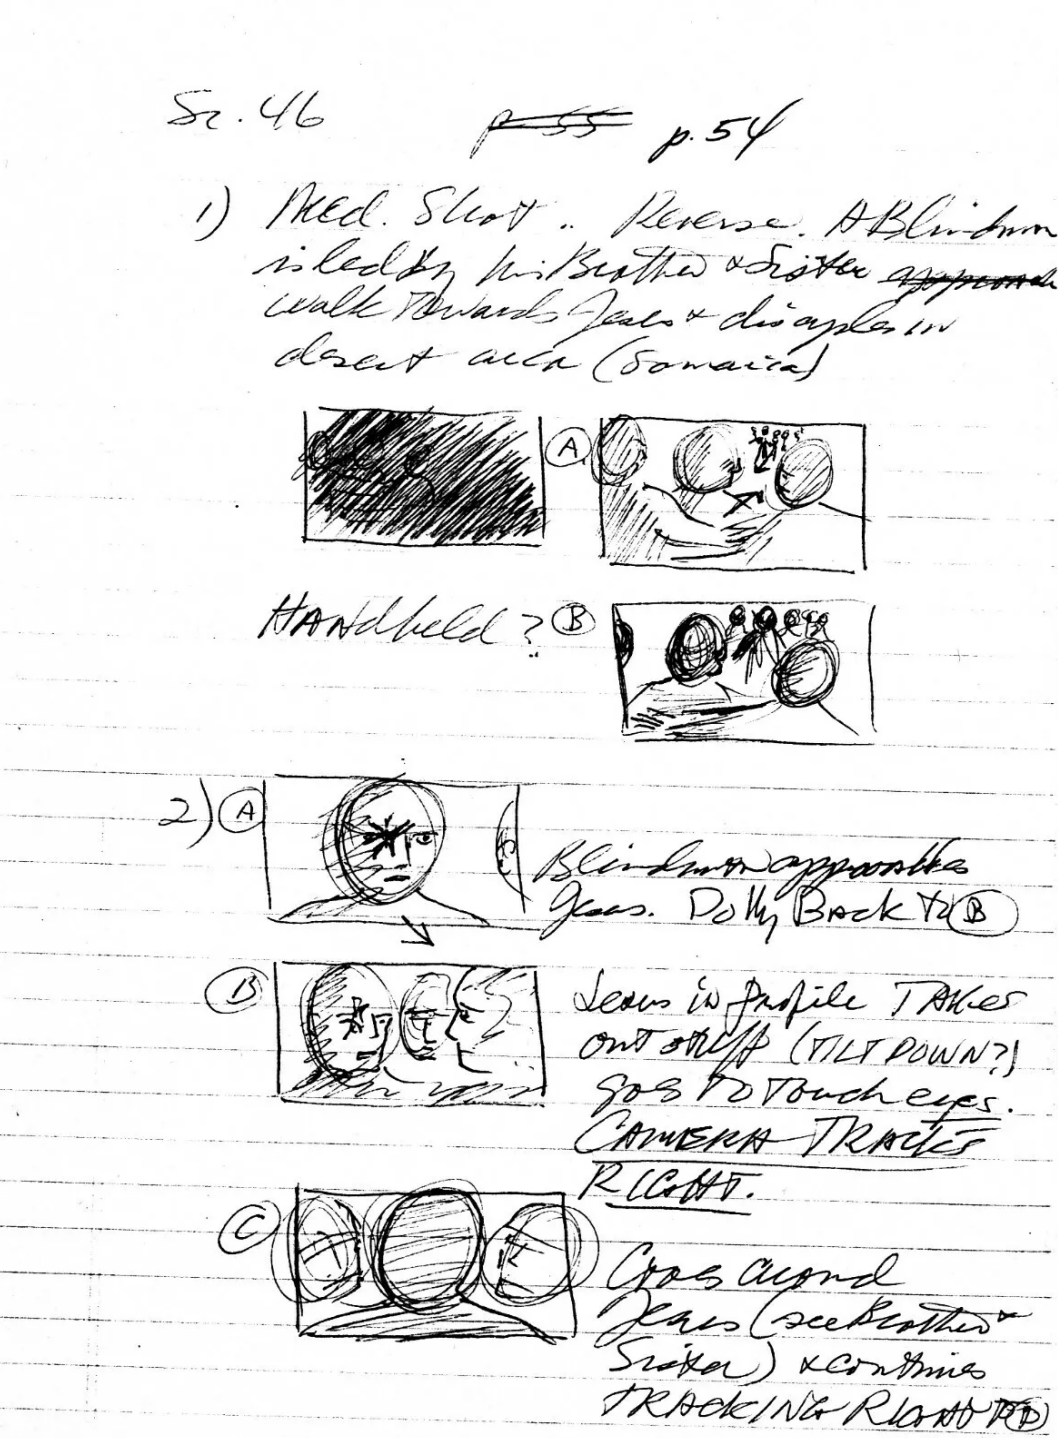 Sc. 46 p 55 p. 54
1) Med. Shot .. Reverse. A Blindman
is led by his Brother & Sister approach
walk towards Jesus & disciples in
desert area (Somaica)
A
Handheld? B
2) A
Blindman approaches
Jesus. Dolly Back to B
B
Jesus in profile TAKES
out stuff (TILT DOWN?)
goes to touch eyes.
CAMERA TRACKS
RIGHT.
C
Goes around
Jesus (see Brother &
Sister) & continues
TRACKING RIGHT TO D